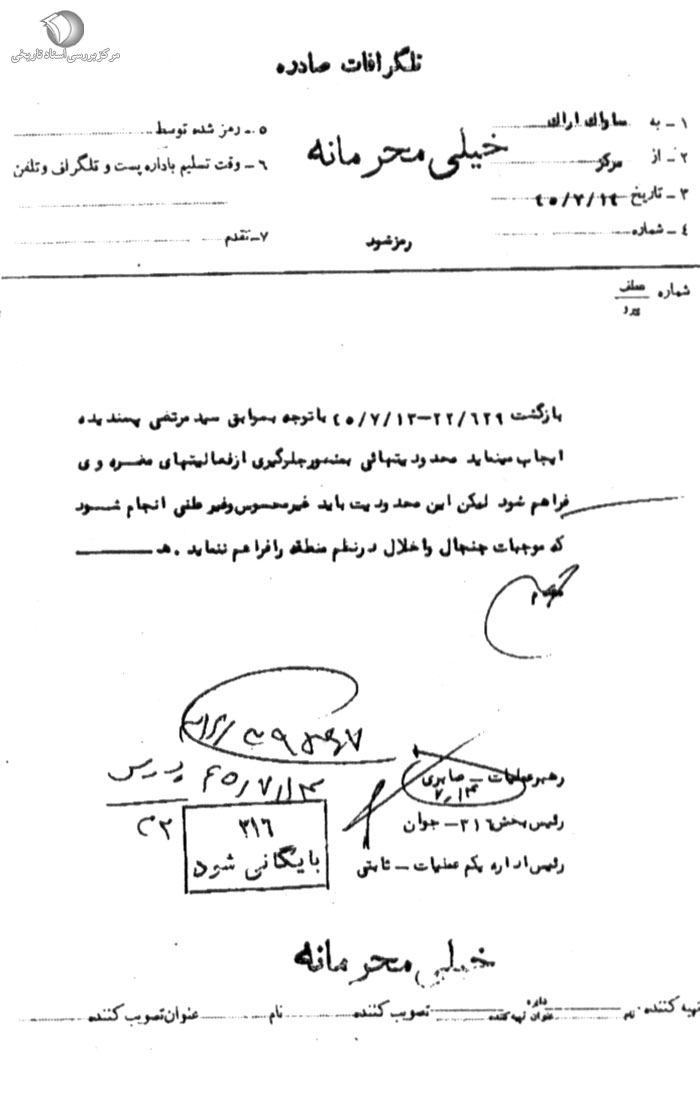 مرکز بررسی اسناد تاریخی
تلگرافات صادره
۱ـ به ساواک اراک
۲ـ از مرکز
۳ـ تاریخ ۴۵/۷/۱۴
۴ـ شماره
خیلی محرمانه
رمز شود
۵ـ رمز شده توسط
۶ـ وقت تسلیم باداره پست و تلگراف و تلفن
۷ـ تقدم
شماره عطف
پیرو
بازگشت ۲۲/۶۲۹–۴۵/۷/۱۳ با توجه بسوابق سید مرتضی پسندیده
ایجاب مینماید محدودیتهائی بمنظور جلوگیری از فعالیتهای مضره وی
فراهم شود لیکن این محدودیت باید غیرمحسوس وغیر علنی انجام شود
که موجبات جنجال واخلال درنظم منطقه رافراهم ننماید . هـ
رهبر عملیات ـ صابری
۷/۱۴
رئیس بخش ۳۱۶ ـ جوان
رئیس اداره یکم عملیات ـ ثابتی
۴۵/۷/۱۴
۳۱۶
بایگانی شود
خیلی محرمانه
تهیه کننده نام عنوان تهیه کننده تصویب کننده نام عنوان تصویب کننده